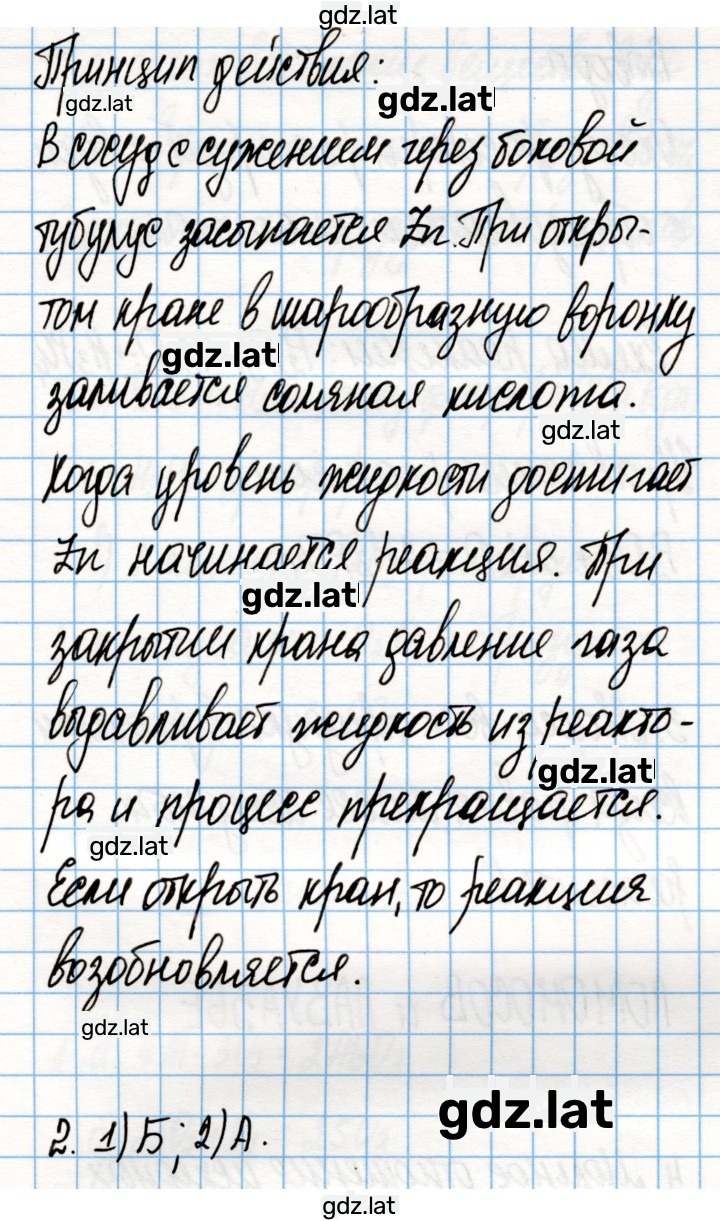 gdz.lat
Принцип действия:
gdz.lat
gdz.lat
В сосуд с сужением через боковой
тубулус засыпается Zn. При откры-
том кране в шарообразную воронку
gdz.lat
заливается соляная кислота.
gdz.lat
Когда уровень жидкости достигает
Zn начинается реакция. При
gdz.lat
закрытии крана давление газа
выдавливает жидкость из реакто-
gdz.lat
ра и процесс прекращается.
gdz.lat
Если открыть кран, то реакция
возобновляется.
gdz.lat
gdz.lat
2. 1) Б; 2) А.
gdz.lat